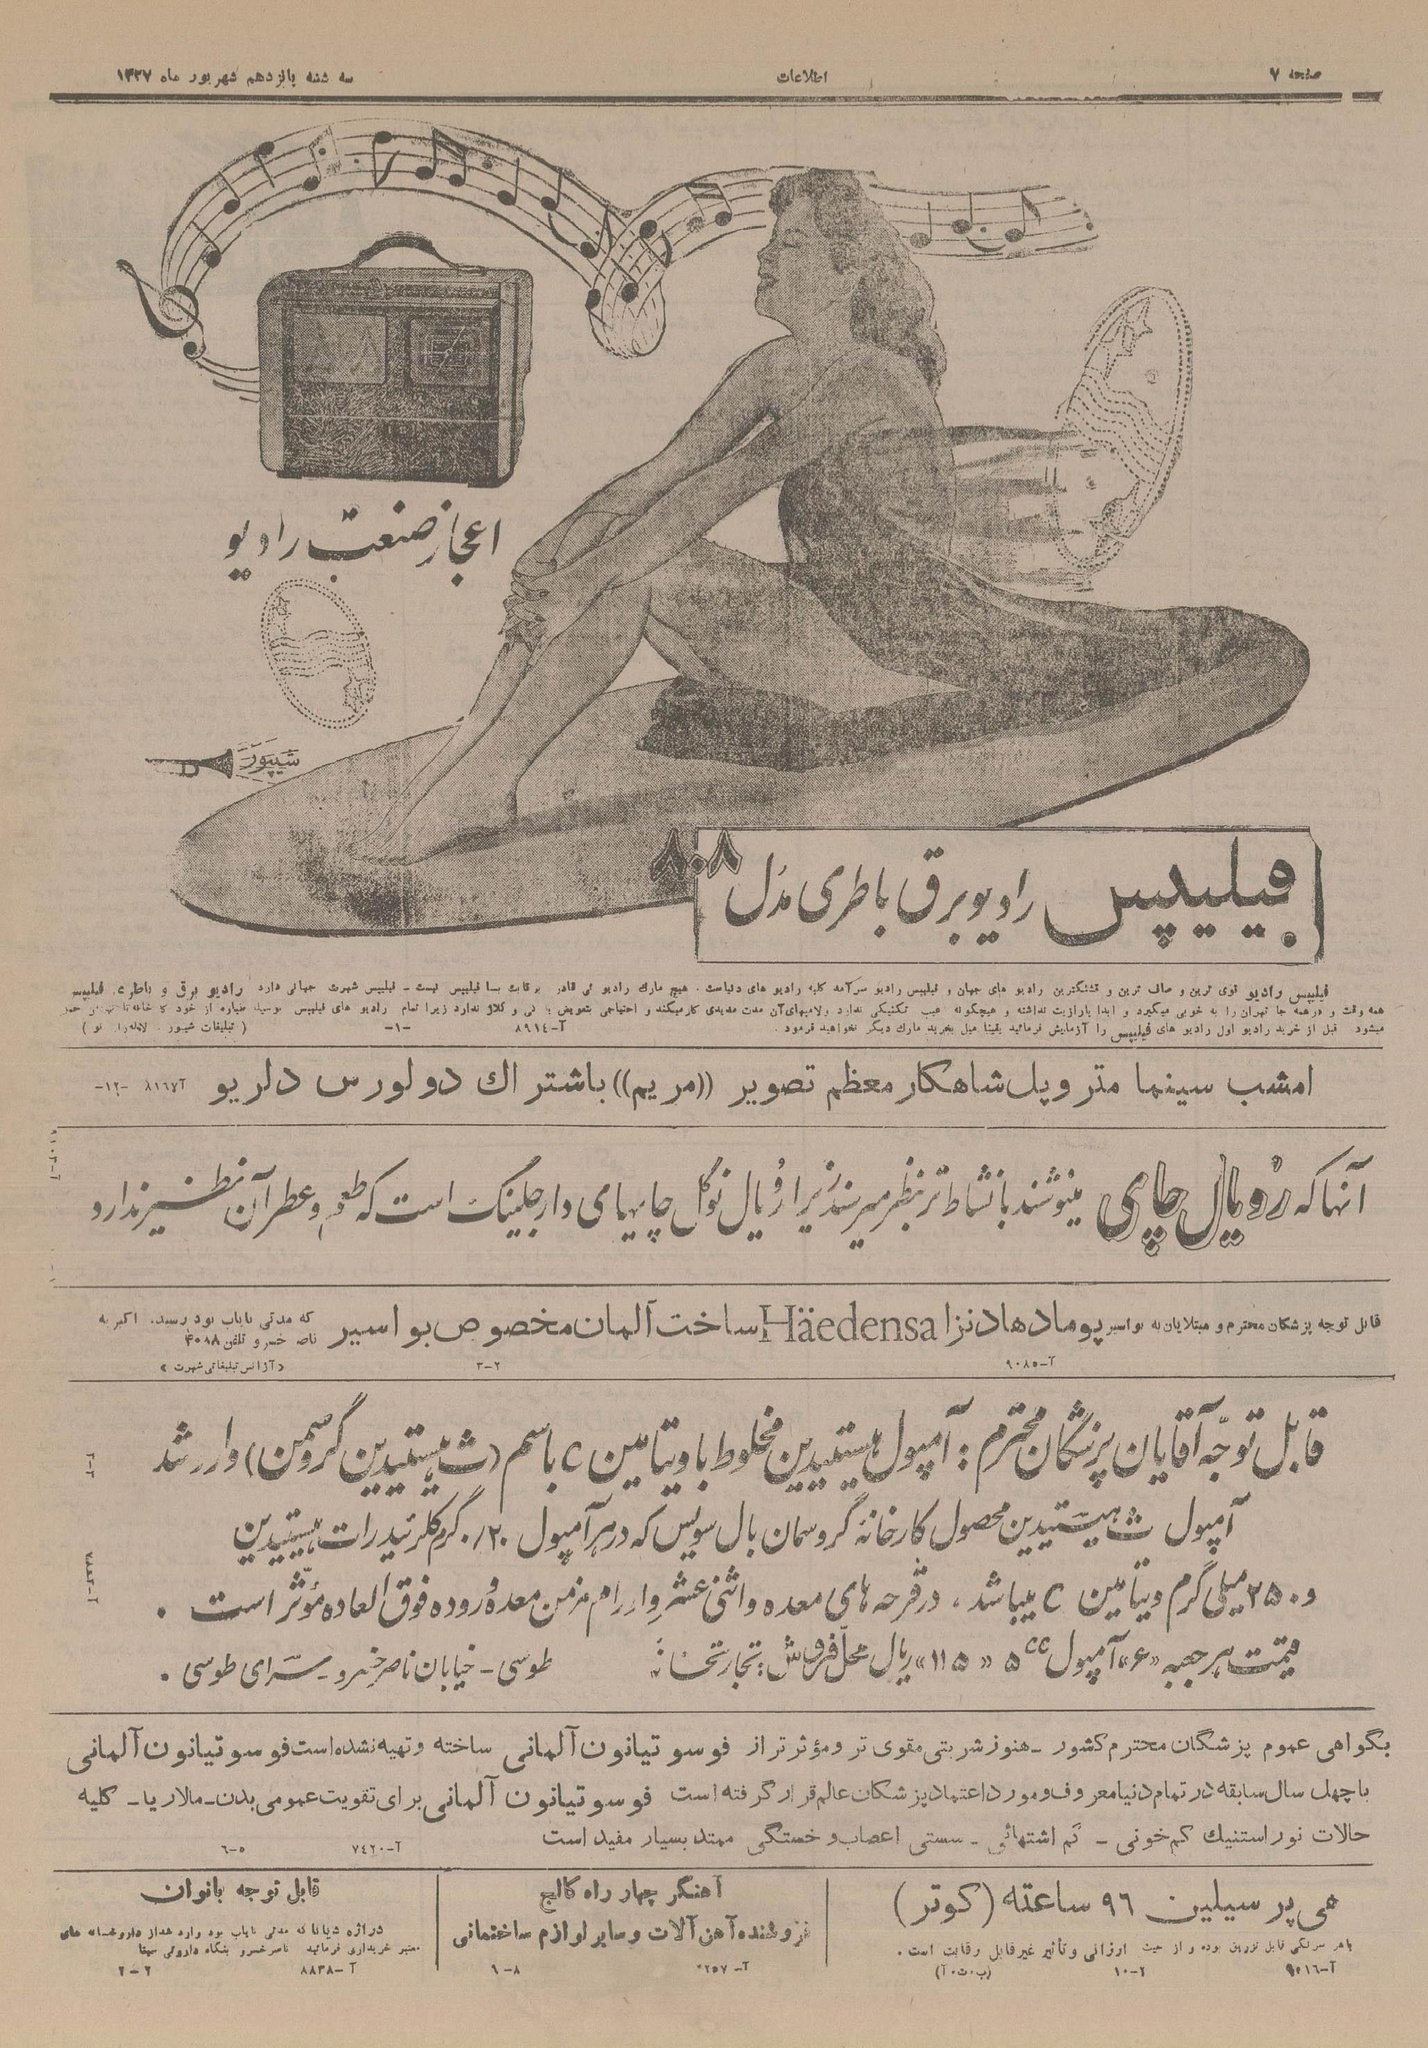 صفحه ۷
اطلاعات
سه شنبه پانزدهم شهریور ماه ۱۳۲۷
اعجاز صنعت رادیو
شیپور
فیلیپس رادیو برق باطری مدل ۸۰۸
فیلیپس رادیو قوی ترین و صاف ترین و قشنگترین رادیو های جهان و فیلیپس رادیو سرآمد کلیه رادیو های دنیاست . هیچ مارك رادیو ئی قادر برقابت با فیلیپس نیست - فیلیپس شهرت جهانی دارد رادیو برق و باطری فیلیپس
همه وقت و در همه جا تهران را به خوبی میگیرد و ابدا پارازیت نداشته و هیچگونه عیب تکنیکی ندارد ولامپهای آن مدت مدیدی کار میکند و احتیاجی بتعویض
میشود قبل از خرید رادیو اول رادیو های فیلیپس را آزمایش فرمائید یقینا میل بخرید مارك دیگر نخواهید فرمود . آ-۸۹۱٤ -۱-
امشب سینما متروپل شاهکار معظم تصویر ((مریم)) باشتراك دولورس دلریو آ۸۱٦۷ -۱۲-
آنها که رویال چای مینوشند با نشاط تر بنظر میرسند زیرا رویال نوگل چایهای دارجلینگ است که طعم و عطر آن نظیر ندارد
قابل توجه پزشکان محترم و مبتلایان به بواسیر پوماد هادنزا Häedensa ساخت آلمان مخصوص بواسیر
که مدتی نایاب بود رسید. اکبریه
ناصر خسرو تلفن ۴۰۸۸
آ-۹۰۸۵ ۲-۳ «آژانس تبلیغاتی شهرت»
قابل توجه آقایان پزشکان محترم : آمپول هیستیدین مخلوط با ویتامین C باسم (ث هیستیدین گروسمن) وارد شد
آمپول ث هیستیدین محصول کارخانه گروسمان بال سویس که در هر آمپول ۰/۲۰ گرم کلرئیدرات هیستیدین
و ۲۵۰ میلی گرم ویتامین C میباشد ، در قرحه های معده و اثنی عشر و اورام مزمن معده و روده فوق العاده مؤثر است .
قیمت هر جعبه «۶» آمپول ۵cc «۱۱۵» ریال محل فروش : تجارتخانه طوسی - خیابان ناصر خسرو - سرای طوسی .
بگواهی عموم پزشگان محترم کشور - هنوز شربتی مقوی تر و مؤثر تر از فوسوتیانون آلمانی ساخته و تهیه نشده است فوسوتیانون آلمانی
با چهل سال سابقه در تمام دنیا معروف و مورد اعتماد پزشکان عالم قرار گرفته است فوسوتیانون آلمانی برای تقویت عمومی بدن - مالاریا - کلیه
حالات نوراستنیك کم خونی - کم اشتهائی - سستی اعصاب و خستگی ممتد بسیار مفید است آ-۷٤۲۰ ۵-٦
پنی سیلین ۹۶ ساعته (کوتر)
باهر سرنگی قابل تزریق بوده و از حیث ارزانی و تأثیر غیر قابل رقابت است .
۲-۱۰
آهنگر چهار راه کالج
فروشنده آهن آلات و سایر لوازم ساختمانی
۸-۹
قابل توجه بانوان
دراژه دیانا که مدتی نایاب بود وارد شد از داروخانه های
معتبر خریداری فرمائید ناصرخسرو بنگاه داروئی سینا
آ-۸۸۳۸ ۲-۲